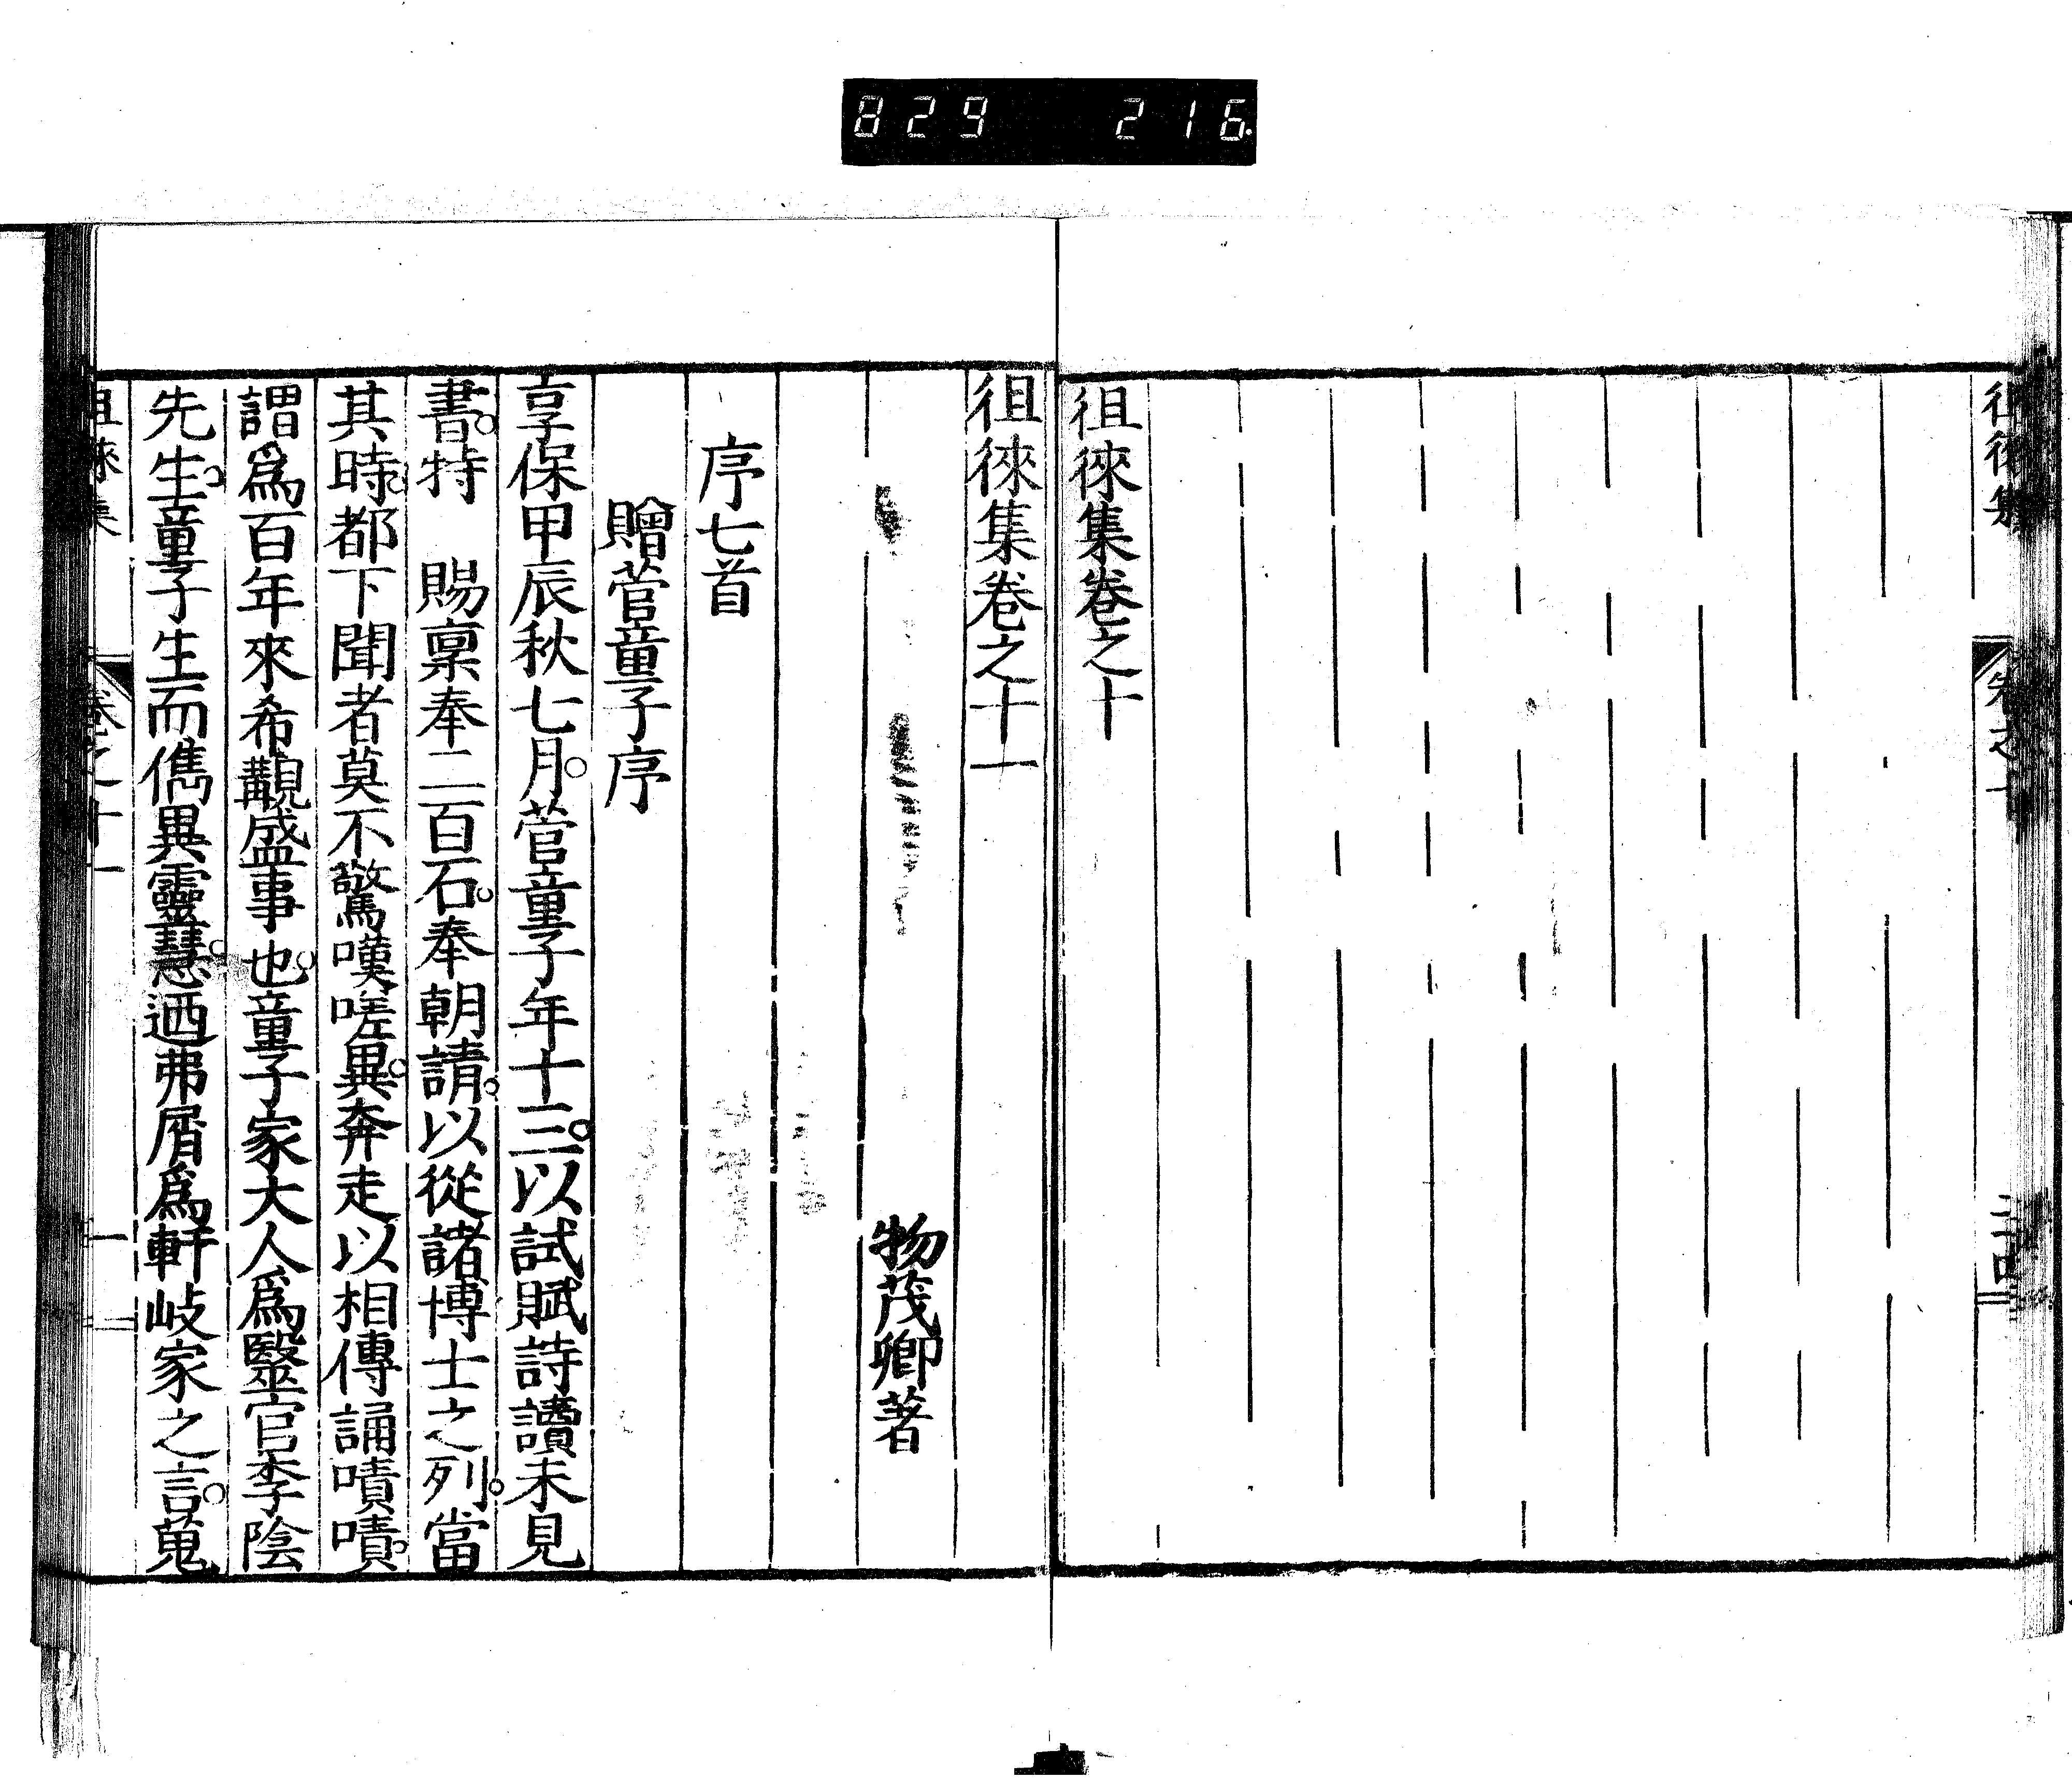 829 216.
徂徠集卷之十
徂徠集卷之十一
物茂卿著
序七首
贈菅童子序
享保甲辰秋七月。菅童子年十三。以試賦詩讀未見
書。特　賜稟奉二百石。奉朝請。以從諸博士之列。當
其時。都下聞者莫不驚嘆嗟異。奔走以相傳誦嘖嘖。
謂爲百年來希覯盛事也。童子家大人爲毉官李陰
先生。童子生而儁異靈慧。迺弗屑爲軒岐家之言。蒐
徂徠集　卷之十一　一